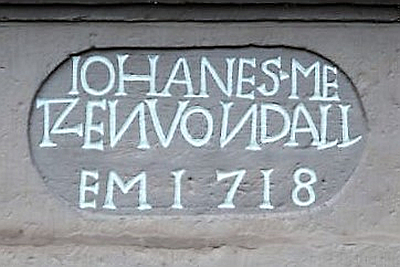 IOHANES·ME
TZENVONDALL
EM 1718